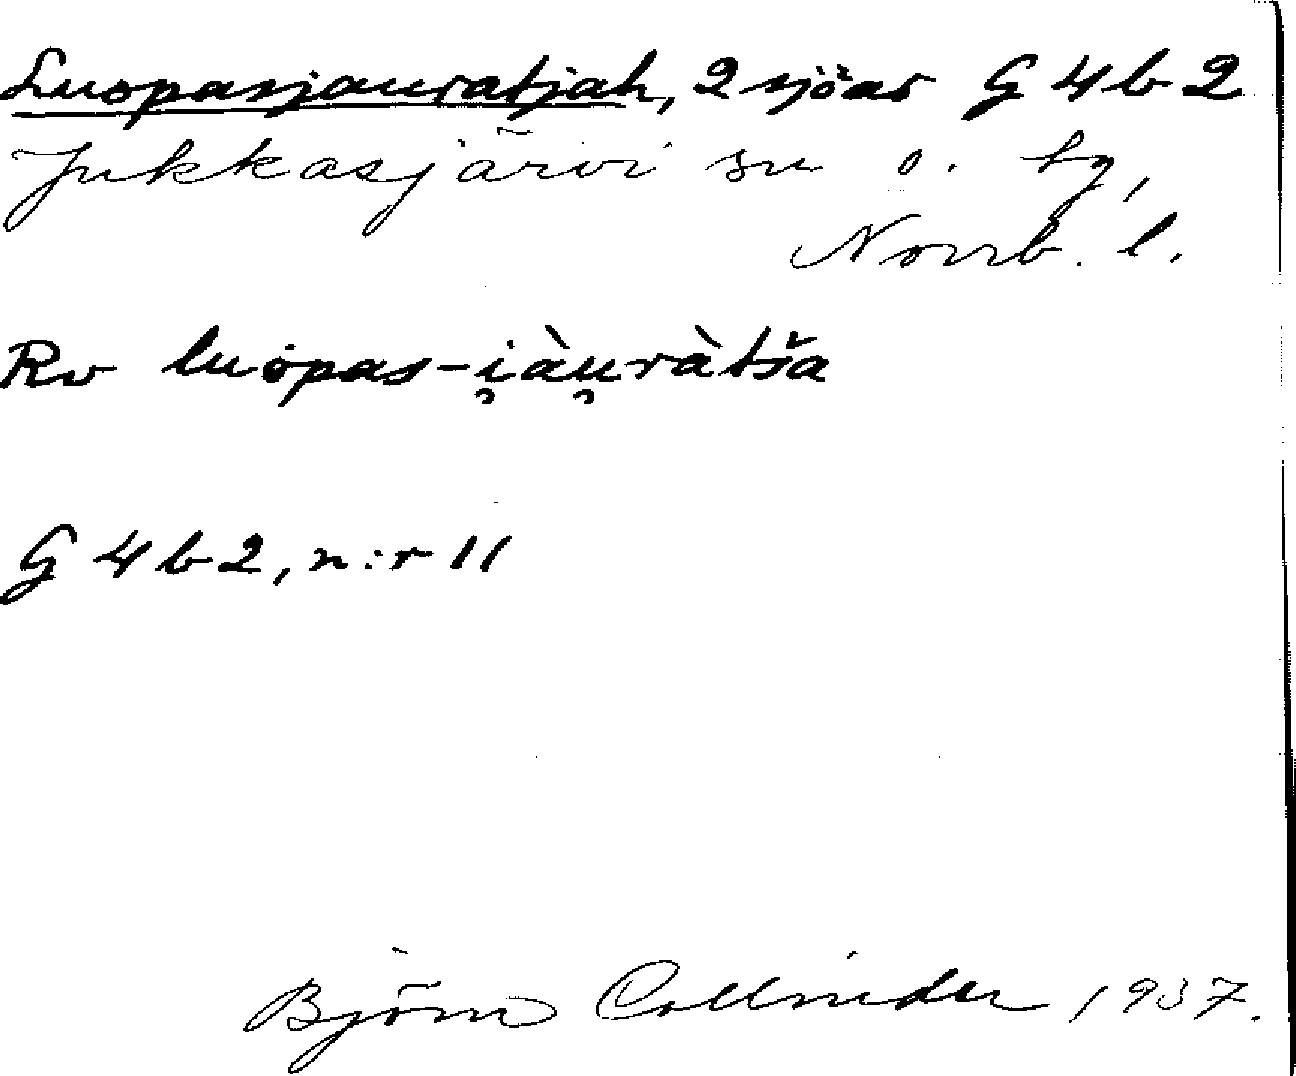 Luopasjauratjah, 2 sjöar G 4 b 2
Jukkasjärvi sn o. tg,
Norrb. l.
Rv luȯpas-i̯àu̯ràtša
G 4 b 2, n:r 11
Björn Collinder 1937.